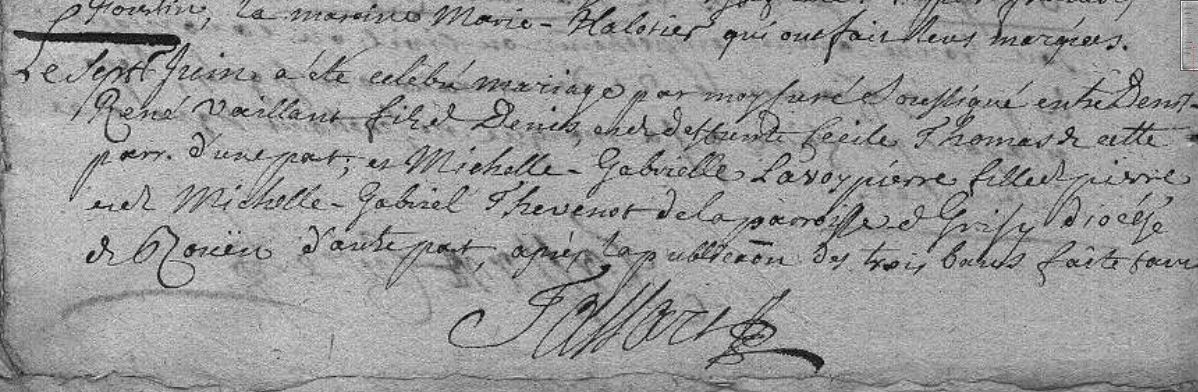 la marine Marie-Halotier qui ont fait leurs marques.
Le Sept Juin a été celebré mariage par moy Curé Soussigné entre Denis
René Vaillant fils de Denis, et de deffunte Cecile Thomas de cette
parr. d'une part; et Michelle-Gabrielle Lavoypierre fille de pierre
et de Michelle-Gabriel Thevenot de la paroisse de Grisy diocése
de Roüen d'autre part, après la publicaõn des trois bans faite sans